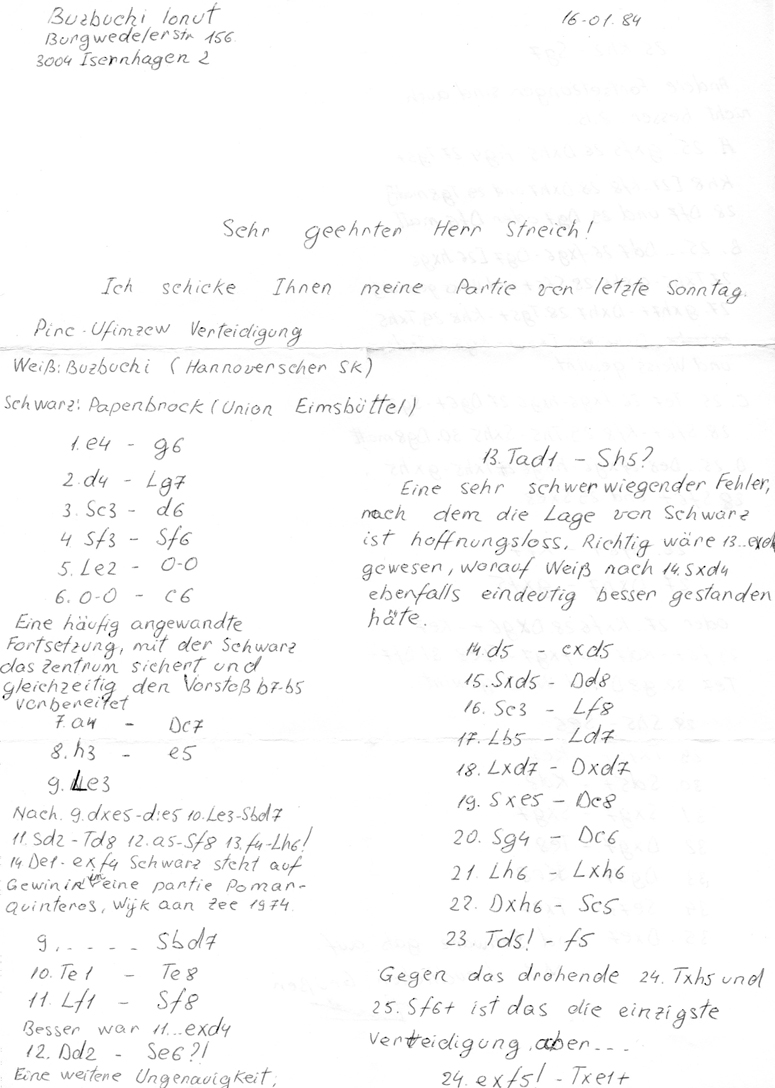 Buzbuchi Ionut
Burgwedelerstr 156
3004 Isernhagen 2
16-01.84
Sehr geehrter Herr Streich!
Ich schicke Ihnen meine Partie von letzte Sonntag.
Pirc-Ufimzew Verteidigung
Weiß: Buzbuchi (Hannoverscher SK)
Schwarz: Papenbrock (Union Eimsbüttel)
1. e4 - g6
2. d4 - Lg7
3. Sc3 - d6
4 Sf3 - Sf6
5. Le2 - 0-0
6. 0-0 - c6
Eine häufig angewandte
Fortsetzung, mit der Schwarz
das Zentrum sichert und
gleichzeitig den Vorstoß b7-b5
vorbereitet
7. a4 - Dc7
8. h3 - e5
9. Le3
Nach. 9. dxe5-d:e5 10. Le3-Sbd7
11. Sd2-Td8 12. a5-Sf8 13. f4-Lh6!
14 De1-exf4 Schwarz steht auf
Gewin in eine partie Pomar-
Quinteros, Wijk aan Zee 1974.
9. . . . . . Sbd7
10. Te1 - Te8
11. Lf1 - Sf8
Besser war 11...exd4
12. Dd2 - Se6?!
Eine weitere Ungenauigkeit;
13. Tad1 - Sh5?
Eine sehr schwerwiegender Fehler,
nach dem die Lage von Schwarz
ist hoffnungsloss. Richtig wäre 13...exd4
gewesen, worauf Weiß nach 14. Sxd4
ebenfalls eindeutig besser gestanden
häte.
14. d5 - cxd5
15. Sxd5 - Dd8
16. Sc3 - Lf8
17. Lb5 - Ld7
18. Lxd7 - Dxd7
19. Sxe5 - Dc8
20. Sg4 - Dc6
21. Lh6 - Lxh6
22. Dxh6 - Sc5
23. Td5! - f5
Gegen das drohende 24. Txh5 und
25. Sf6+ ist das die einzigste
Verteidigung, aber...
24. exf5! - Txe1+